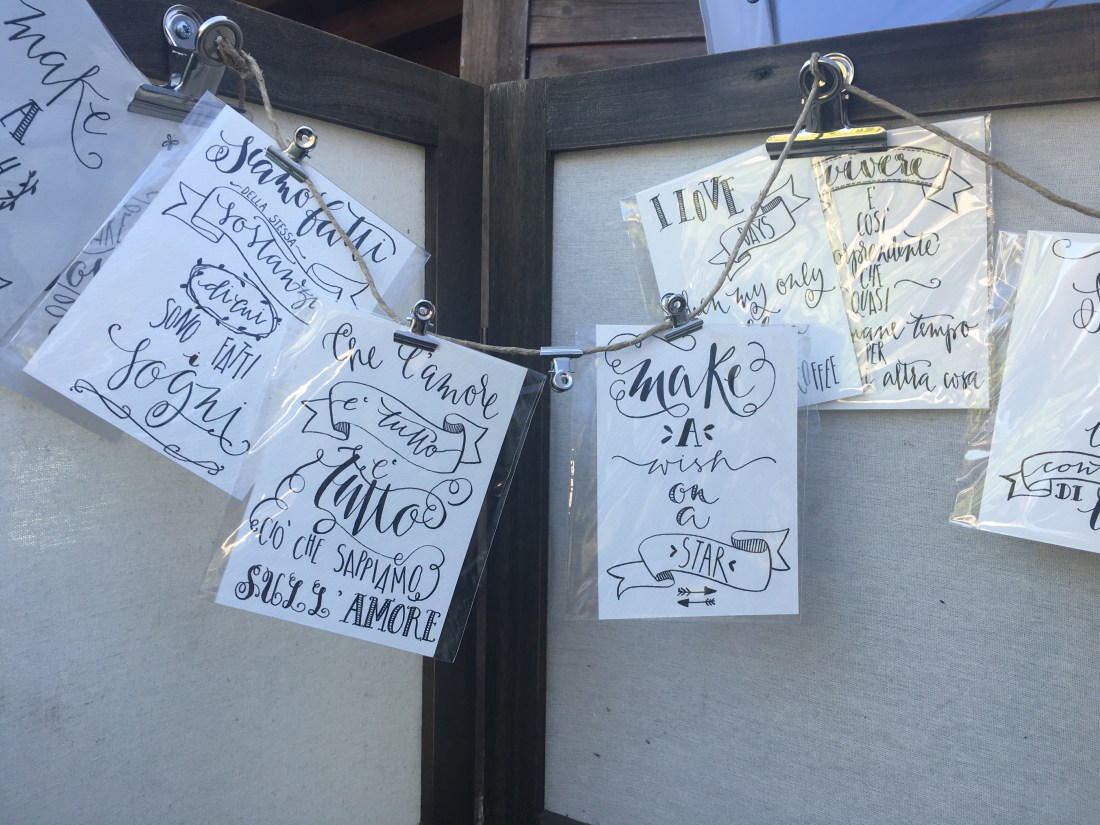 make
A
Siamo fatti
DELLA STESSA
sostanza
di cui
SONO FATTI
i sogni
Che l'amore
e' tutto
e'
tutto
CIO' CHE SAPPIAMO
SULL'AMORE
make
A
wish
on
a
STAR
I LOVE
DAYS
my only
COFFEE
vivere
E
COSI'
CHE
QUASI
tempo
PER
altra cosa
con
DI